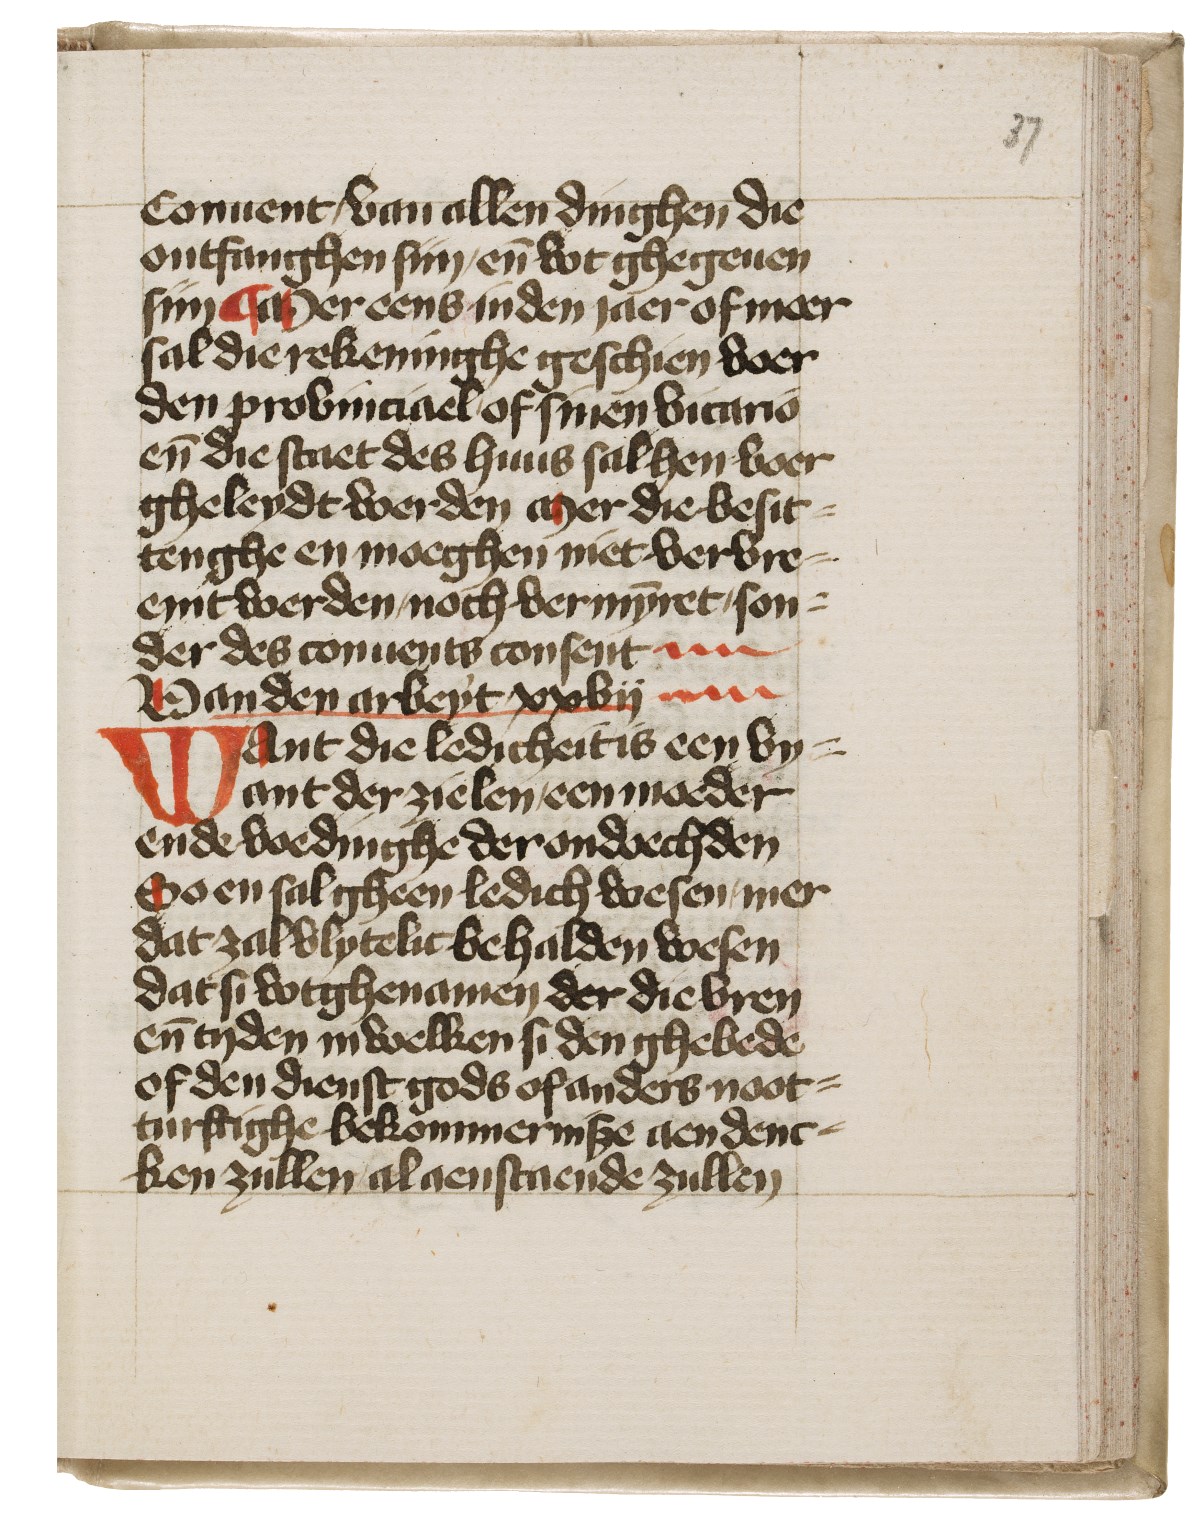 37
Conuent / van allen dinghen die
ontfanghen siin / en̄ wt ghegeuen
siin ¶ Mer eens in den iaer of meer
sal die rekeninghe geschien voer
den provinciael of sinen vicario
en̄ die staet des huus sal hen voer
gheleydt werden Mer die besit=
tenghe en moeghen niet vervre=
emt werden / noch vermȳret / son=
der des conuents consent
Van den arbeyt xxvij
Want die ledicheit is een vy=
ant der zielen / een moeder
ende voedinghe der ondoechden
So en sal gheen ledich wesen / mer
dat zal vlytelic behalden wesen
dat si wtghenamen der die vren
en̄ tyden in welken si den ghebede
of den dienst gods of anders noot=
turftighe bekommernisze aendenc=
ken zullen / al aenstaende zullen